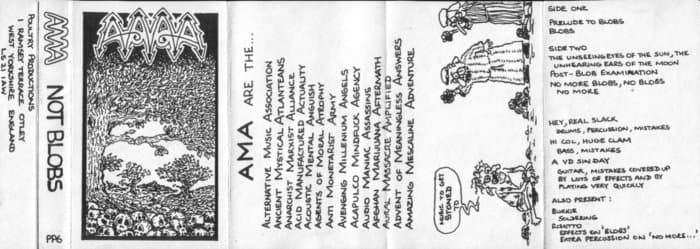 AMA
NOT BLOBS
POULTRY PRODUCTIONS
1 RAMSEY TERRACE OTLEY
WEST YORKSHIRE ENGLAND
LS 21 1AW
PP6
AMA
AMA ARE THE...
ALTERNATIVE MUSIC ASSOCIATION
ANCIENT MYSTICAL ATLANTEANS
ANARCHIST MARXIST ALLIANCE
ACID MANUFACTURED ACTUALITY
ACOUSTIC MENTAL ANGUISH
AGENTS OF MORAL ATROPHY
ANTI MONETARIST ARMY
AVENGING MILLENIUM ANGELS
ACAPULCO MINDFUCK AGENCY
AUDIO MANIAC ASSASSINS
AFGHAN MARIJUANA AFTERMATH
AURAL MASSACRE AMPLIFIED
ADVENT OF MEANINGLESS ANSWERS
AMAZING MESCALINE ADVENTURE
MUSIC TO GET
STONED
TO
SIDE ONE
PRELUDE TO BLOBS
BLOBS
SIDE TWO
THE UNSEEING EYES OF THE SUN, THE
UNHEARING EARS OF THE MOON
POST-BLOB EXAMINATION
NO MORE BLOBS, NO BLOBS
NO MORE
HEY, REAL SLACK
DRUMS, PERCUSSION, MISTAKES
HI COL, HUGE CLAM
BASS, MISTAKES
A VD SIN DAY
GUITAR, MISTAKES COVERED UP
BY LOTS OF EFFECTS AND BY
PLAYING VERY QUICKLY
ALSO PRESENT:
SOLDERING
EFFECTS ON 'BLOBS'
EXTRA PERCUSSION ON 'NO MORE...'